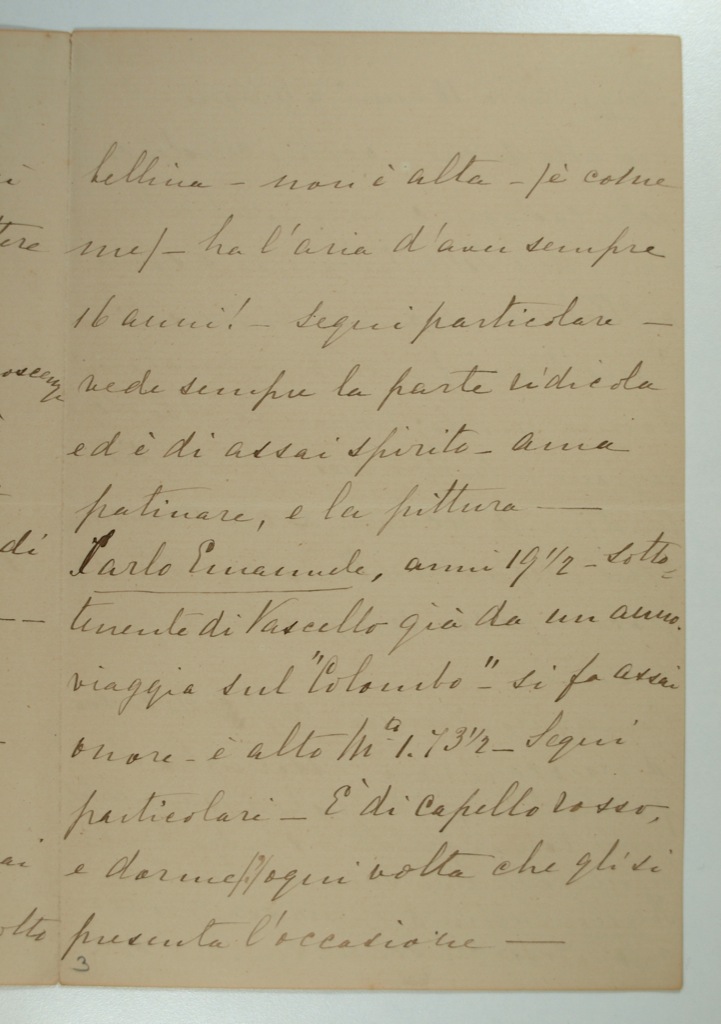 bellina – non è alta – (è come
me) – ha l'aria d'aver sempre
16 anni! – Segni particolare –
vede sempre la parte ridicola
ed è di assai spirito – ama
patinare, e la pittura —
Carlo Emanuele, anni 19 1/2 – Sotto=
tenente di Vascello già da un anno.
viaggia sul "Colombo" – si fa assai
onore – è alto 1.73 1/2 – Segni
particolari – È di capello rosso,
e dorme (!) ogni volta che gli si
presenta l'occasione —
3
di
ai